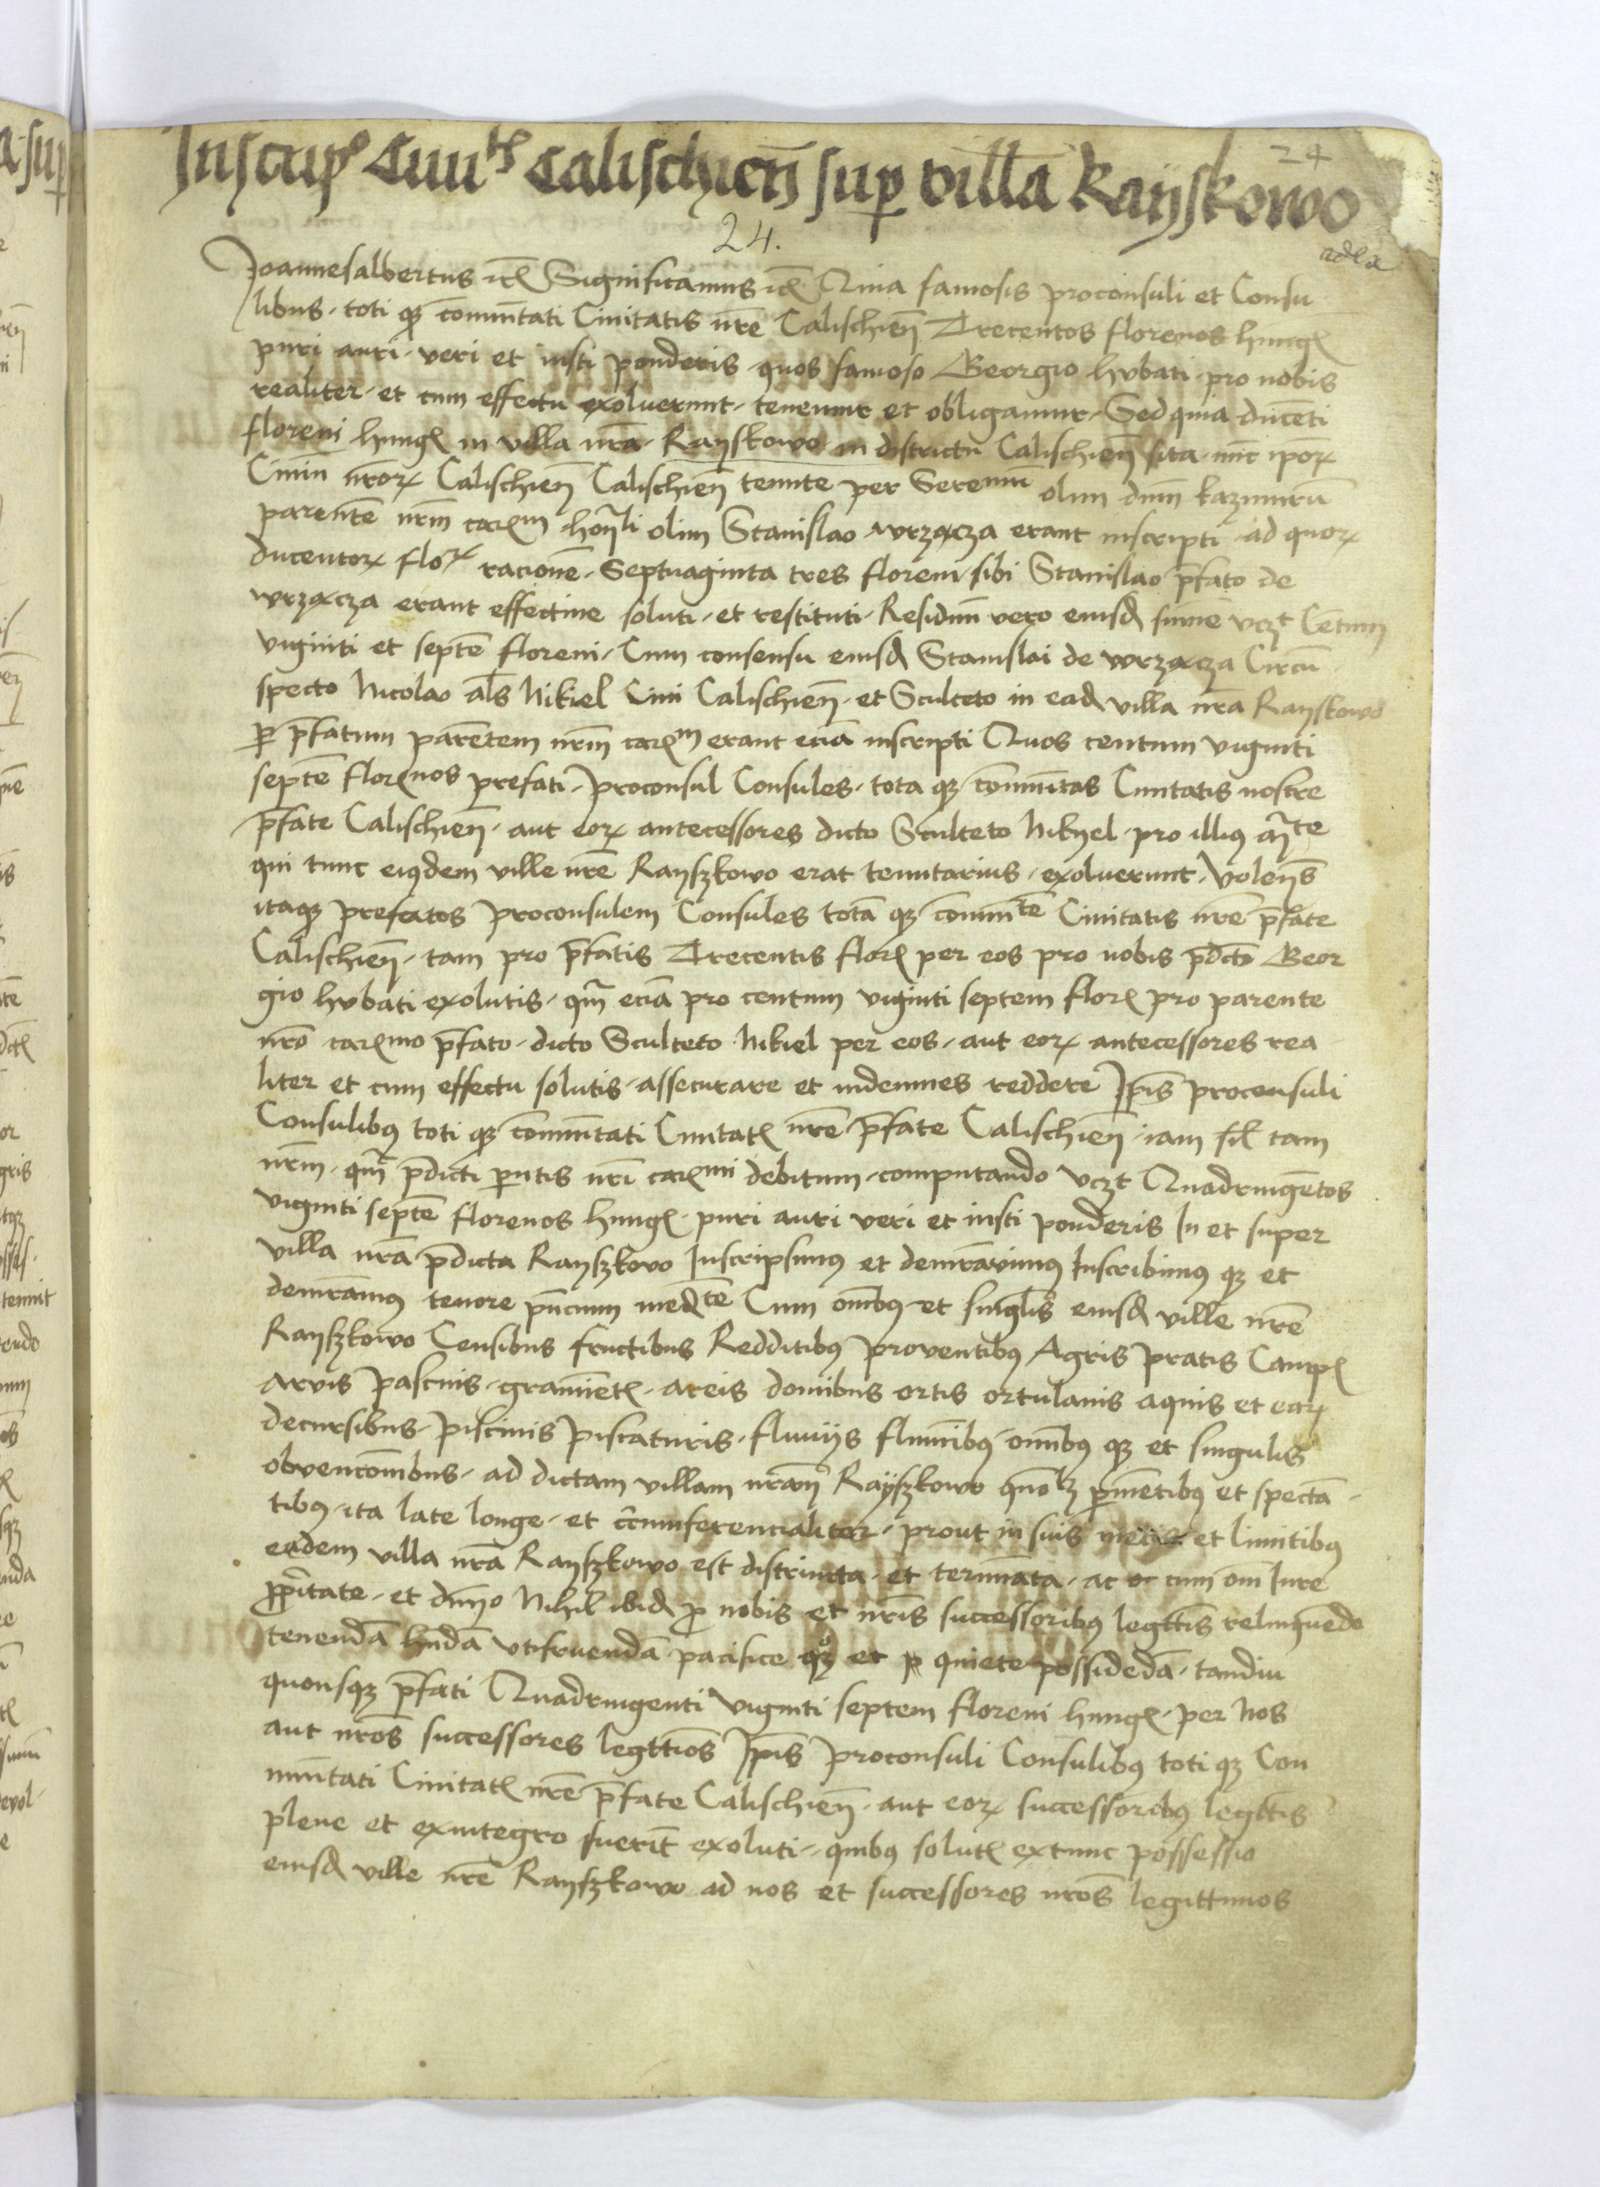 Inscrip Civi Calischien sup villa Rayskowo
24
24.
Joannesalbertus etc Significamus etc Quia famosis proconsuli et Consu
libus. toti qz comuntati Civitatis nre Calischien Trecentos florenos hung
puri auri. veri et iusti ponderis. quos famoso Georgio hvbati. pro nobis
realiter. et cum effectu exoluerunt. tenemur et obligamur. Sed quia ducenti
floreni hung in villa nra. Rayskowo in districtu Calischien sita. nunc ipor
Civiu nror Calischien Calischien tenute per Serenmu olim dnm Kazimiru
parente nrm carm. olim Stanislao wrzacza erant inscripti. ad quor
ducentor flor racione. Septuaginta tres floreni. sibi Stanislao pfato de
wrzacza erant effective soluti. et restituti. Residuu vero eiusd sume vczt Centum
viginti et septe floreni. Cum consensu eiusd Stanislai de wrzacza Circu
specto Nicolao als Nikiel Civi Calischien. et Sculteto in ead villa nra Rayskowo
p pfatum parentem nrm carm erant ecia inscripti Quos centum viginti
septe florenos prefati. proconsul Consules. tota qz comuntas Civitatis nostre
pfate Calischien. aut eor antecessores dicto Sculteto Nikyel. pro illius
qui tunc eiusdem ville nre Rayszkowo erat tenutarius. exoluerunt. Volens
itaqz prefatos proconsulem Consules tota qz comunte Civitatis nre pfate
Calischien. tam pro pfatis Trecentis flor per eos pro nobis pdcto Geor
gio hvbati exolutis. qm ecia pro centum viginti septem flor pro parente
nro carmo pfato. dicto Sculteto Nikiel per eos. aut eor antecessores rea
liter et cum effectu solutis. assecurare et indemnes reddere Ipis proconsuli
Consulibus toti qz comuntati Civitat nre pfate Calischien. iam tam
nrm. qm pdicti pntis nri carmi debitum. computando vczt Quadringetos
viginti septe florenos hung. puri auri veri et iusti ponderis In et super
villa nra pdicta Rayszkowo Inscripsimus et Inscribimus qz et
tenore pncium medte Cum omibus et singlis eiusd ville nre
Rayszkowo Censibus fructibus Redditibus proventibus Agris pratis Camp
Arvis pascuis. graniciet. areis domibus ortis ortulanis aquis et ear
decursibus. piscinis piscaturis. fluviis fluminibus omibus qz et singulis
obvencionibus. ad dictam villam nram Rayszkowo quolz ptinetibus et specta
tibus. ita late longe. et circumferencialiter. prout in suis metis et limitibus
eadem villa nra Rayszkowo est districta. et terminata. ac cum omi Iure
pritate. et dmio Nihil ibid p nobis et nris successoribus legttis relinquendo
tenenda hnda vtifruenda. pacifice qz et quiete possideda. tandiu
quousqz pfati Quadringenti viginti septem floreni hung. per Nos
aut nros successores legttios Ipis proconsuli Consulibus toti qz Con
muntati Civitat nre pfate Calischien. aut eor successoribus legttis
plene et exintegro fuerit exoluti. quibus solut extunc possessio
eiusd ville nre Rayszkowo ad nos et successores nros legittimos